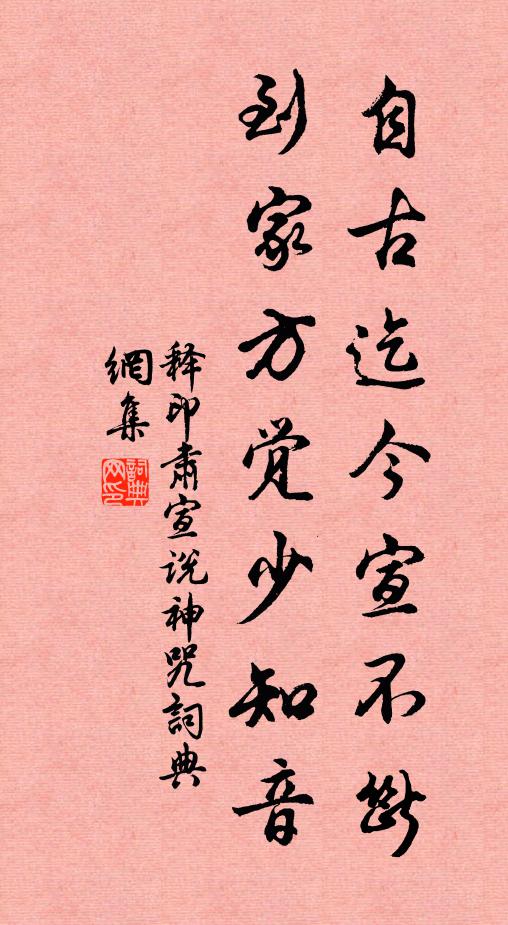 自古迄今宣不断
到家方觉少知音
释印肃宣说神咒詞典
網集
詞典
网印